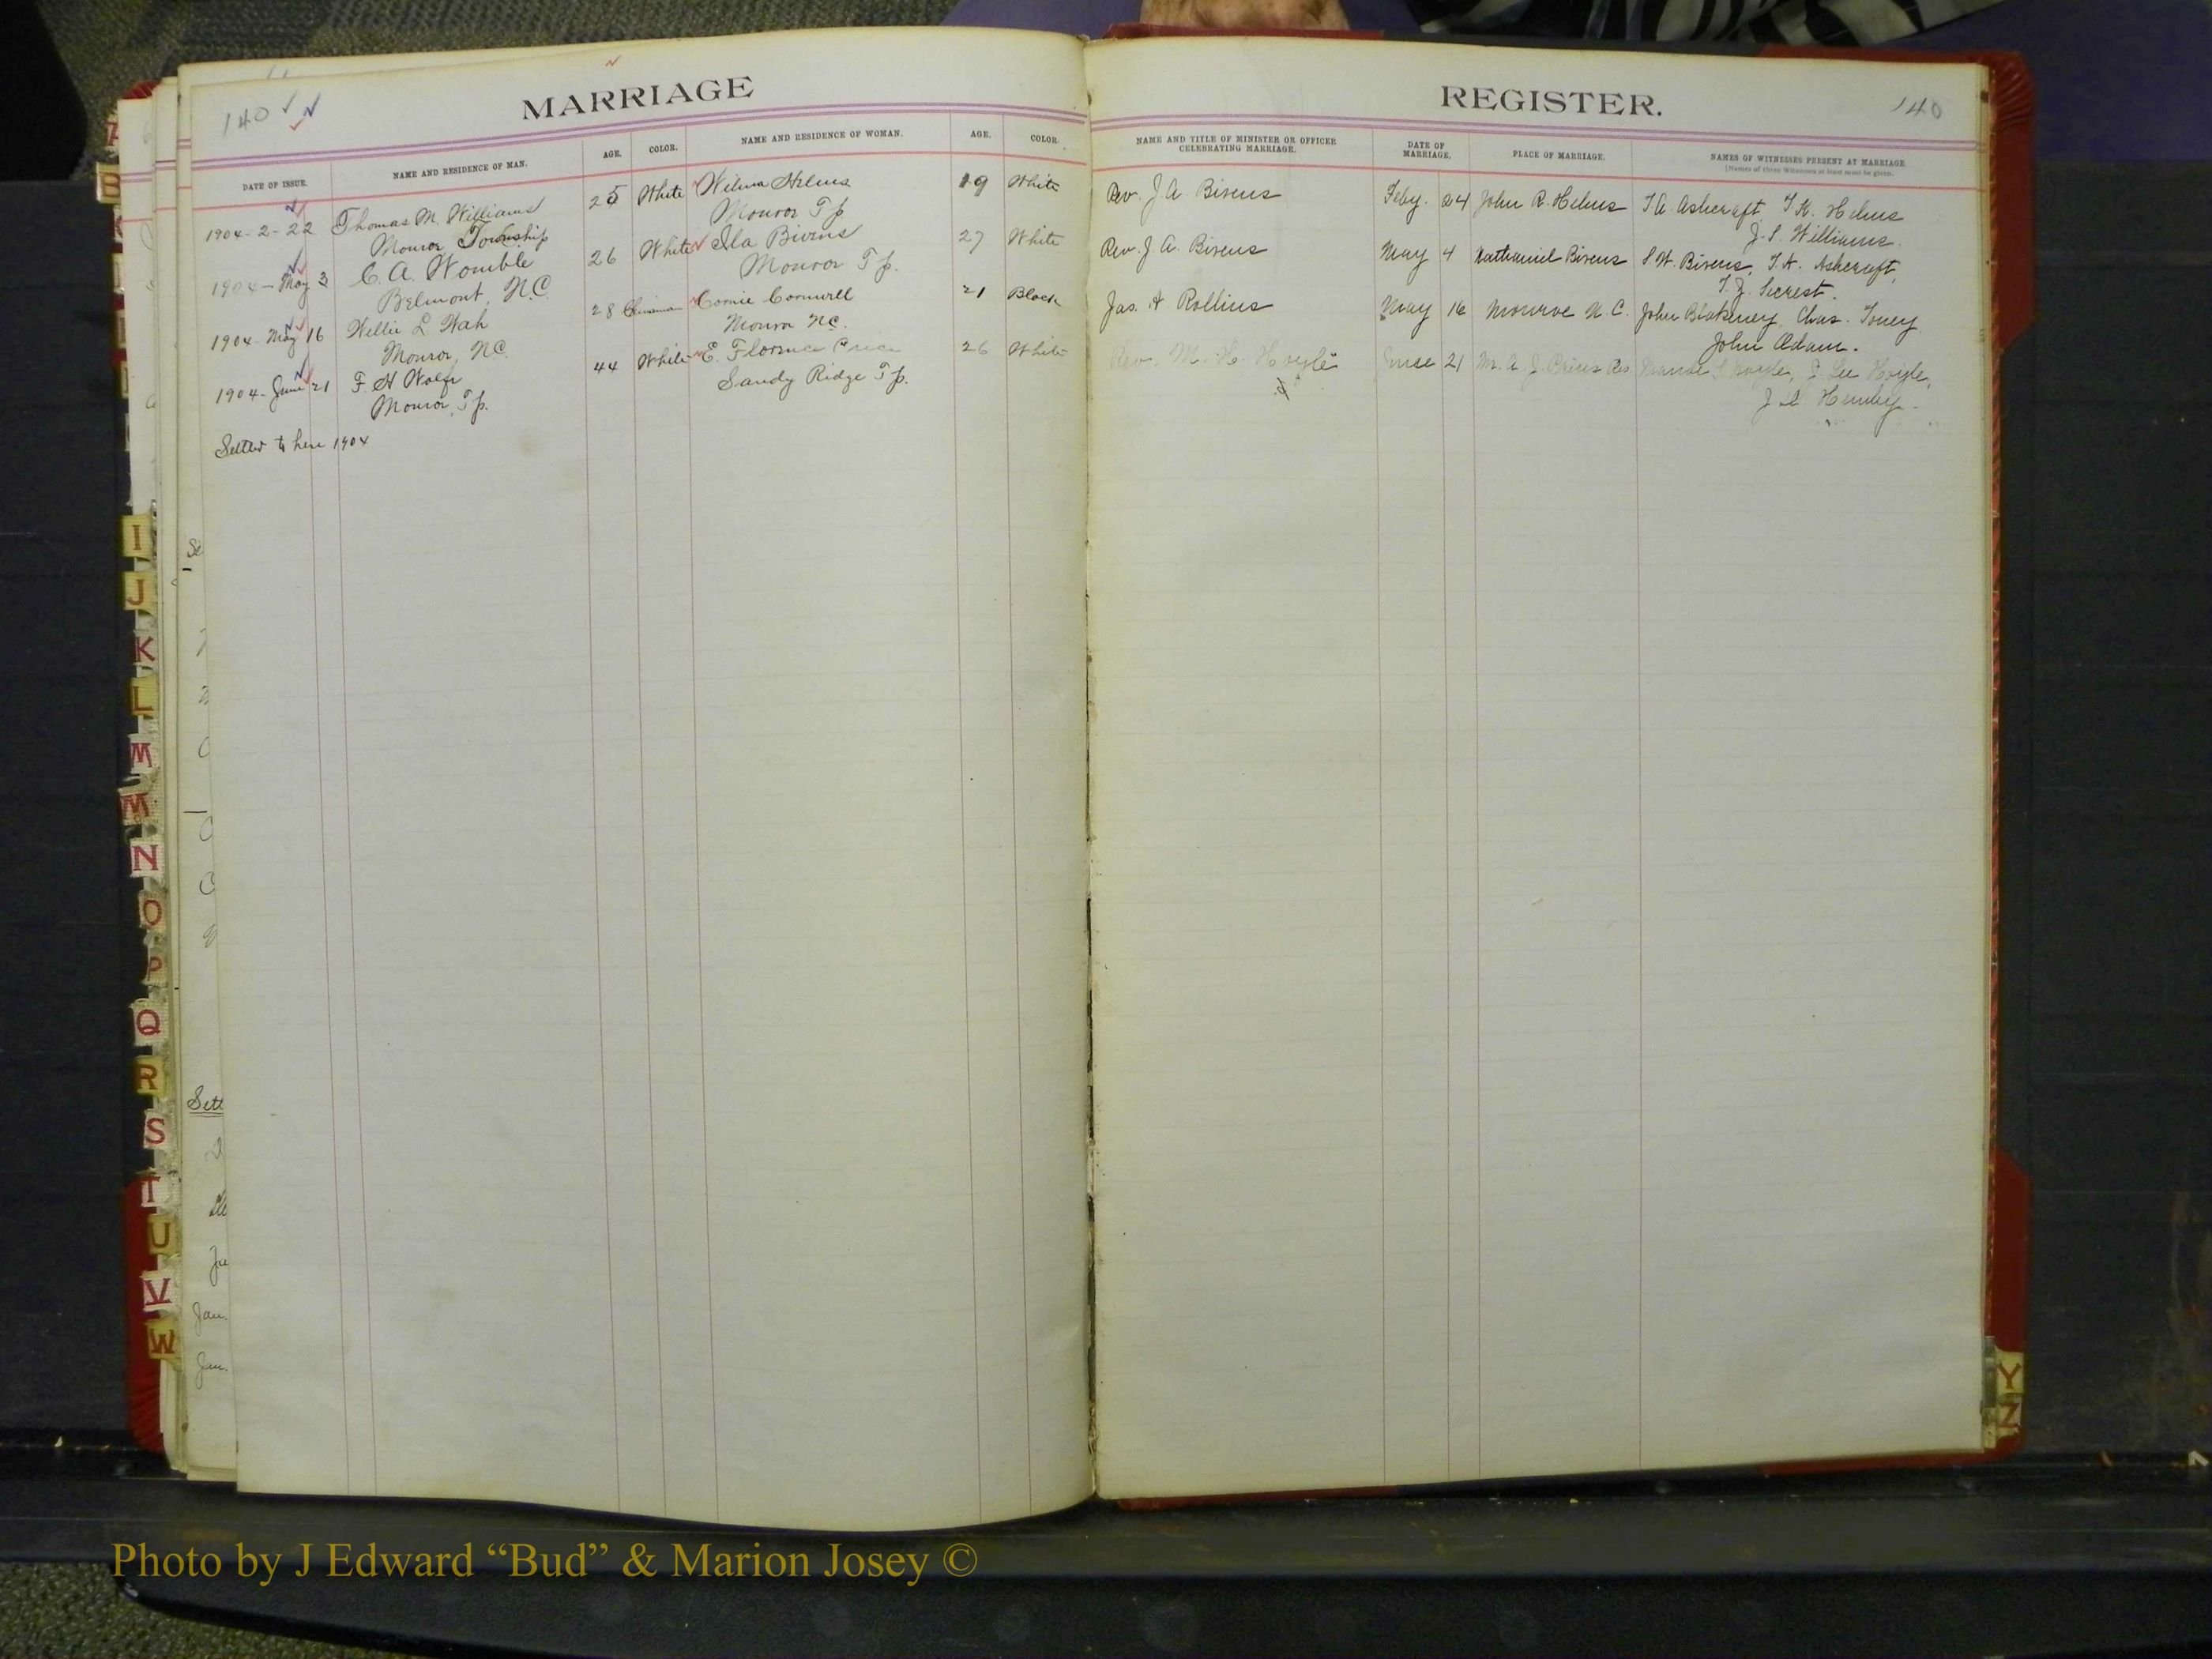 140
MARRIAGE
DATE OF ISSUE. NAME AND RESIDENCE OF MAN. AGE. COLOR. NAME AND RESIDENCE OF WOMAN. AGE. COLOR.
1904-2-22 Thomas M. Williams 25 White Wilma Helms 19 White
Monroe Township Monroe Tp
1904-May 3 C. A. Womble 26 White Ila Bivens 27 White
Belmont, N.C. Monroe Tp.
1904-May 16 Willie L Wah 28 Chinaman Cornwell 21 Black
Monroe, N.C. Monroe N.C.
1904-June 21 F. H Wolfe 44 White E. Florence Price 26 White
Monroe, Tp. Sandy Ridge Tp.
to here 1904
REGISTER.
140
NAME AND TITLE OF MINISTER OR OFFICER CELEBRATING MARRIAGE. DATE OF MARRIAGE. PLACE OF MARRIAGE. NAMES OF WITNESSES PRESENT AT MARRIAGE.
[Names of three Witnesses at least must be given.
Rev. J. A. Bivens Feby. 24 John R. Helms T. A. Ashcraft, T. K. Helms
J. S. Williams.
Rev. J. A. Bivens May 4 Nathaniel Bivens S. W. Bivens, T. K. Ashcraft,
T. J. Secrest.
Jas. H Rollins May 16 Monroe N. C. John Blakeney, Chas. Toney
John Adam.
Rev. M. H. Hoyle June 21 Mr. A. J. Price's Res Hoyle, Lee Hoyle,
I
J
K
L
M
M
N
O
P
Q
R
S
T
U
V
W
Y
Z
Sett
Jan.
Jan.
Photo by J Edward “Bud” & Marion Josey ©